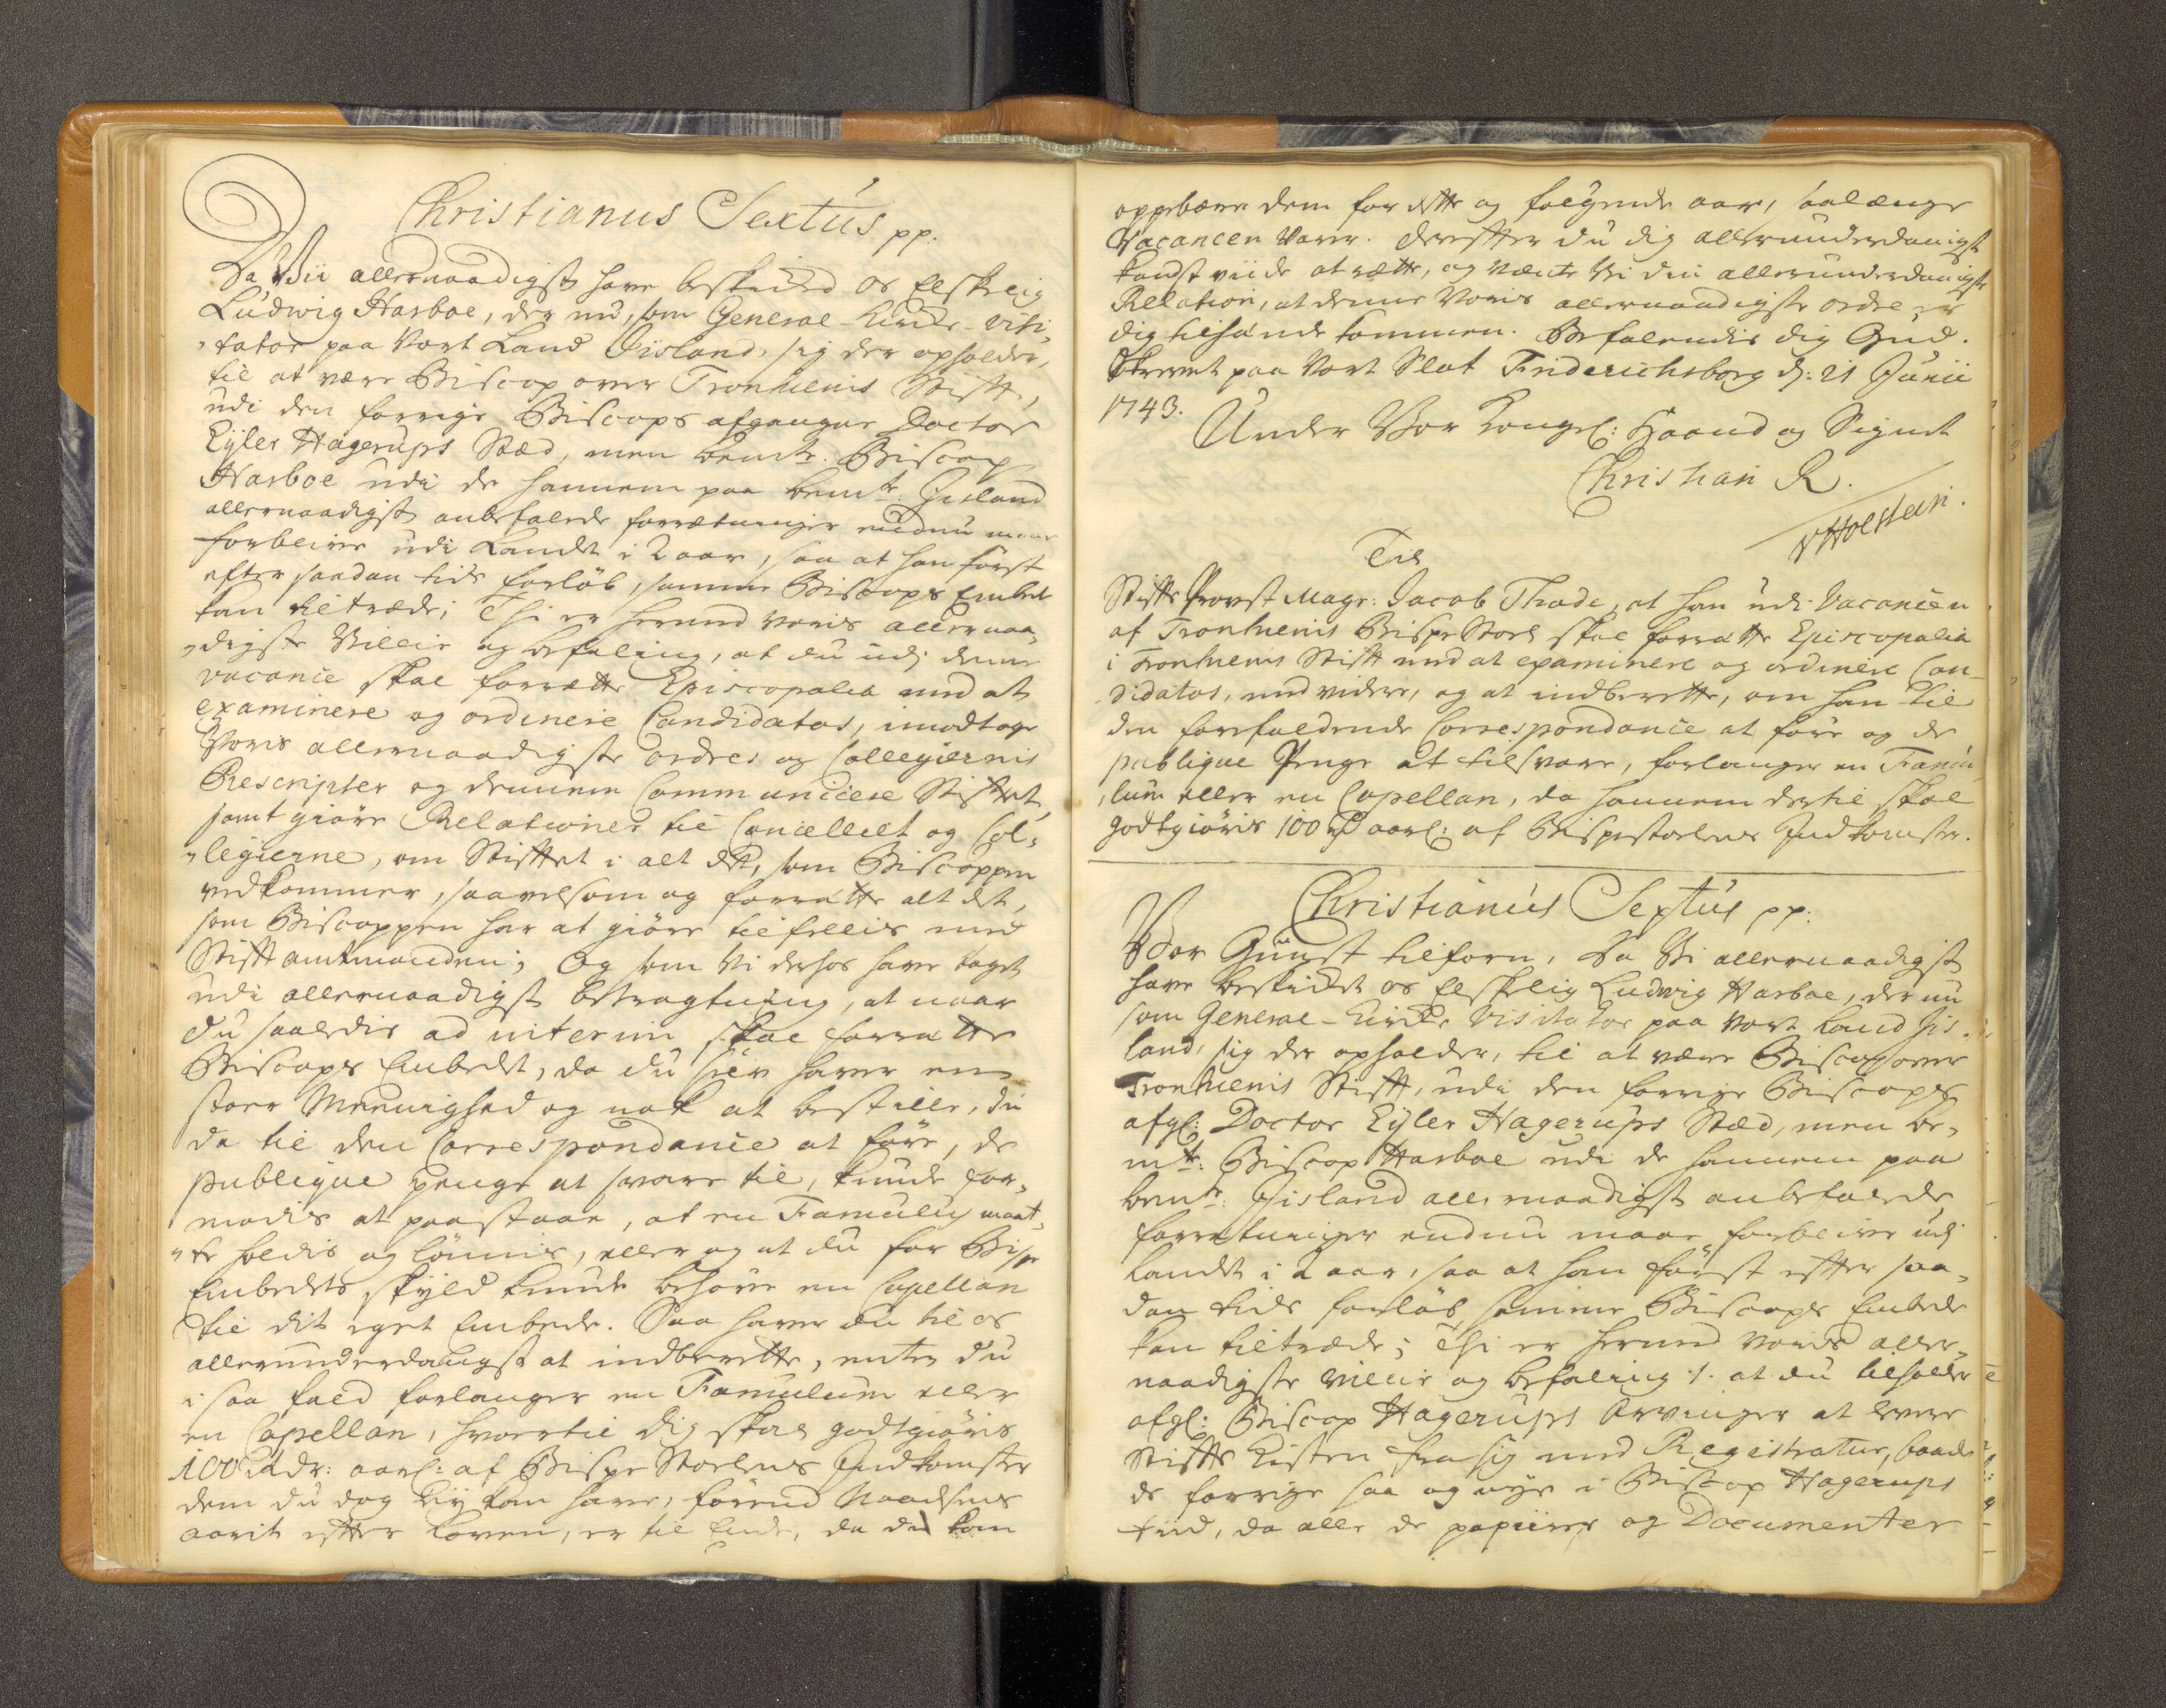 Christianus Sextus pp.
Da Wii allernaadigst have beskicked os Elskelig
Ludwig Harboe, der nu, som General-Kirke-Visi-
tator paa Vort Land Iisland, sig der opholder,
til at være Biscop over Tronhiems Stift,
udi den forrige Biscops afgangne Doctor
Eyler Hagerups Stæd, men bemte. Biscop
Harboe udi de hannem paa bemte: Iisland
allernaadigst anbefalede forrætninger endnu maae
forblive udi Landet i 2 aar, saa at han først
efter saadan tids forløb, samme Biscops Embede
kan tiltræde; Thi er hermed Voris allernaa-
digste Villie og befaling, at du udj denne
vacance skal forrætte Episcopalia med at
examinere og ordinere Candidatos, imodtage
Voris allernaadigste ordres og Collegiernis
Rescripter og dennem Communicere Stiftet,
samt giøre Relationer til Cancelliet og Col-
legierne, om Stiftet i alt det, som Biscoppen
vedkommer, saavelsom og forrætte alt det,
som Biscoppen har at giøre tilfellis med
Stiftamtmanden; Og som Vi derhos have taget
udi allernaadigst betragtning, at naar
du saaledis ad interim skal forrætte
Biscops Embedet, da du selv haver en
stoer Meenighed og nok at bestille, du
da til den Correspondance at føre, de
publique penge at svare til, kunde for-
modes at paastaae, at en Famulus maat-
te holdis og lønnis, eller og at du for Bispe
Embedets skyld kunde behøve en Capellan
til dit eget Embede. Saa haver du til os
allerunderdanigst at indberette, enten du
i saa fald forlanger en Famulum eller
en Capellan, hvortil dig skal godtgiøris
100 Rdr: aarl: af Bispe Stoelens Indkomster
dem du dog ey kan have, førend Naadsens
aarit efter Loven, er til Ende, da du kan
oppebære dem for dette og følgende aar, saalænge
Vacancen varer. Derefter du dig allerunderdanigst
kandst viide at rætte, og vænte Vi din allerunderdanigste
Relation, at denne Voris allernaadigste ordre, er
dig tilhænde kommen. Befalendis dig Gud.
Skrevet paa Vort Slot Friderichsborg d: 21 Junii
1743.
Under Vor Kongel: Haand og Signet
Christian R.
v Holstein.
Til
Stifts Provst Magr: Jacob Thode, at han udi Vacancen
af Tronhiems Bispe Stoel skal forrætte Episcopalia
i Tronhiems Stift med at examinere og ordinere Can-
didatos, med videre, og at indberette, om han til
den forefaldende Correspondance at føre og de
publique Penge at tilsvare, forlanger en Famu-
lum eller en Capellan, da hannem dertil skal
godtgiøris 100 rd aarl: af Bispestoelens Indkomster.
Christianus Sextus pp.
Vor Gunst tilforn, Da Vi allernaadigst
have beskicket os Elskelig Ludwig Harboe, der nu
som General-Kirke Visitator paa Vort Land Iis-
land, sig der opholder, til at være Biscop over
Tronhiems Stift, udi den forrige Biscops
afgl: Doctor Eyler Hagerups Stæd, men be-
mte: Biscop Harboe udi de hannem paa
bemte: Iisland allernaadigst anbefalede
forrætninger endnu maae forblive udj
Landet i 2 aar, saa at han først efter saa-
dan tids forløb samme Biscops Embede
kan tiltræde; Thi er hermed Voris aller-
naadigste Villie og befaling /. at du tilholder
afgl: Biscop Hagerups Arvinger at levere
Stifts Kisten fra sig med Registratur, baade
de forrige saa og nye i Biscop Hagerups
tiid, da alle de papiirer og Documenter